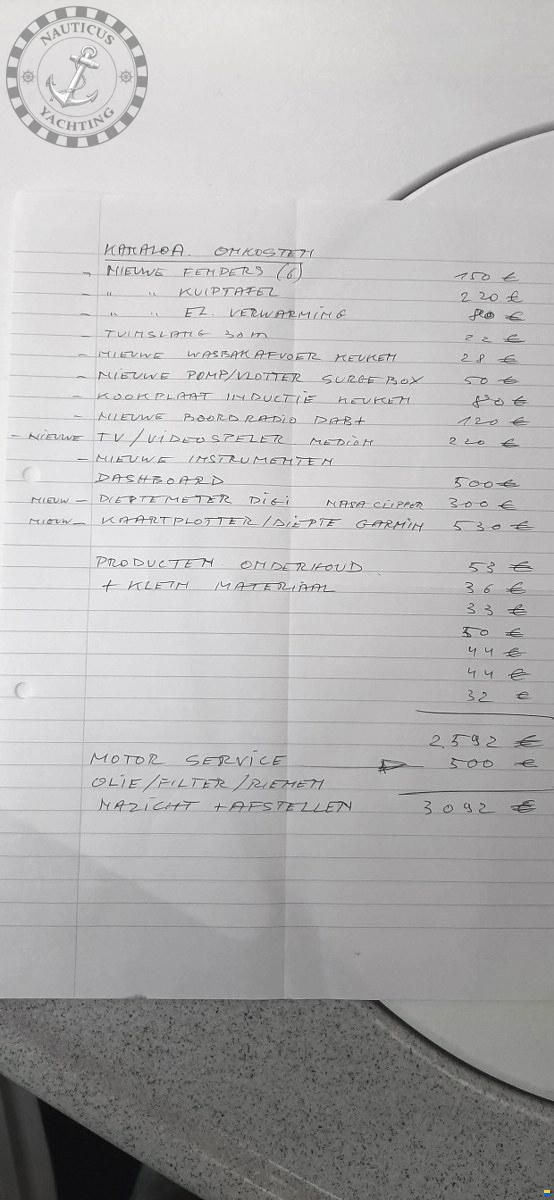 NAUTICUS
YACHTING
KANALOA ONKOSTEN
- NIEUWE FENDERS (6) 150 €
- " " KUIPTAFEL 220 €
- " " EL. VERWARMING 80 €
- TUINSLANG 30m 22 €
- NIEUWE WASBAKAFVOER KEUKEN 28 €
- NIEUWE POMP/VLOTTER SURGEBOX 50 €
- KOOKPLAAT INDUCTIE KEUKEN 80 €
- NIEUWE BOORDRADIO DAB+ 120 €
- NIEUWE TV/VIDEOSPELER MEDION 220 €
- NIEUWE INSTRUMENTEN
DASHBOARD 500 €
NIEUW - DIEPTEMETER DIGI NASA CLIPPER 300 €
NIEUW - KAARTPLOTTER/DIEPTE GARMIN 530 €
PRODUCTEN ONDERHOUD 53 €
+ KLEIN MATERIAAL 36 €
33 €
50 €
44 €
44 €
32 €
2.592 €
MOTOR SERVICE 500 €
OLIE/FILTER/RIEMEN
NAZICHT + AFSTELLEN 3092 €